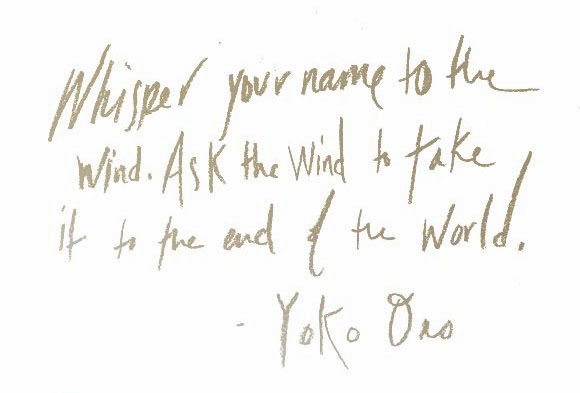 Whisper your name to the
Wind. Ask the Wind to take
it to the end of the World.
- Yoko Ono